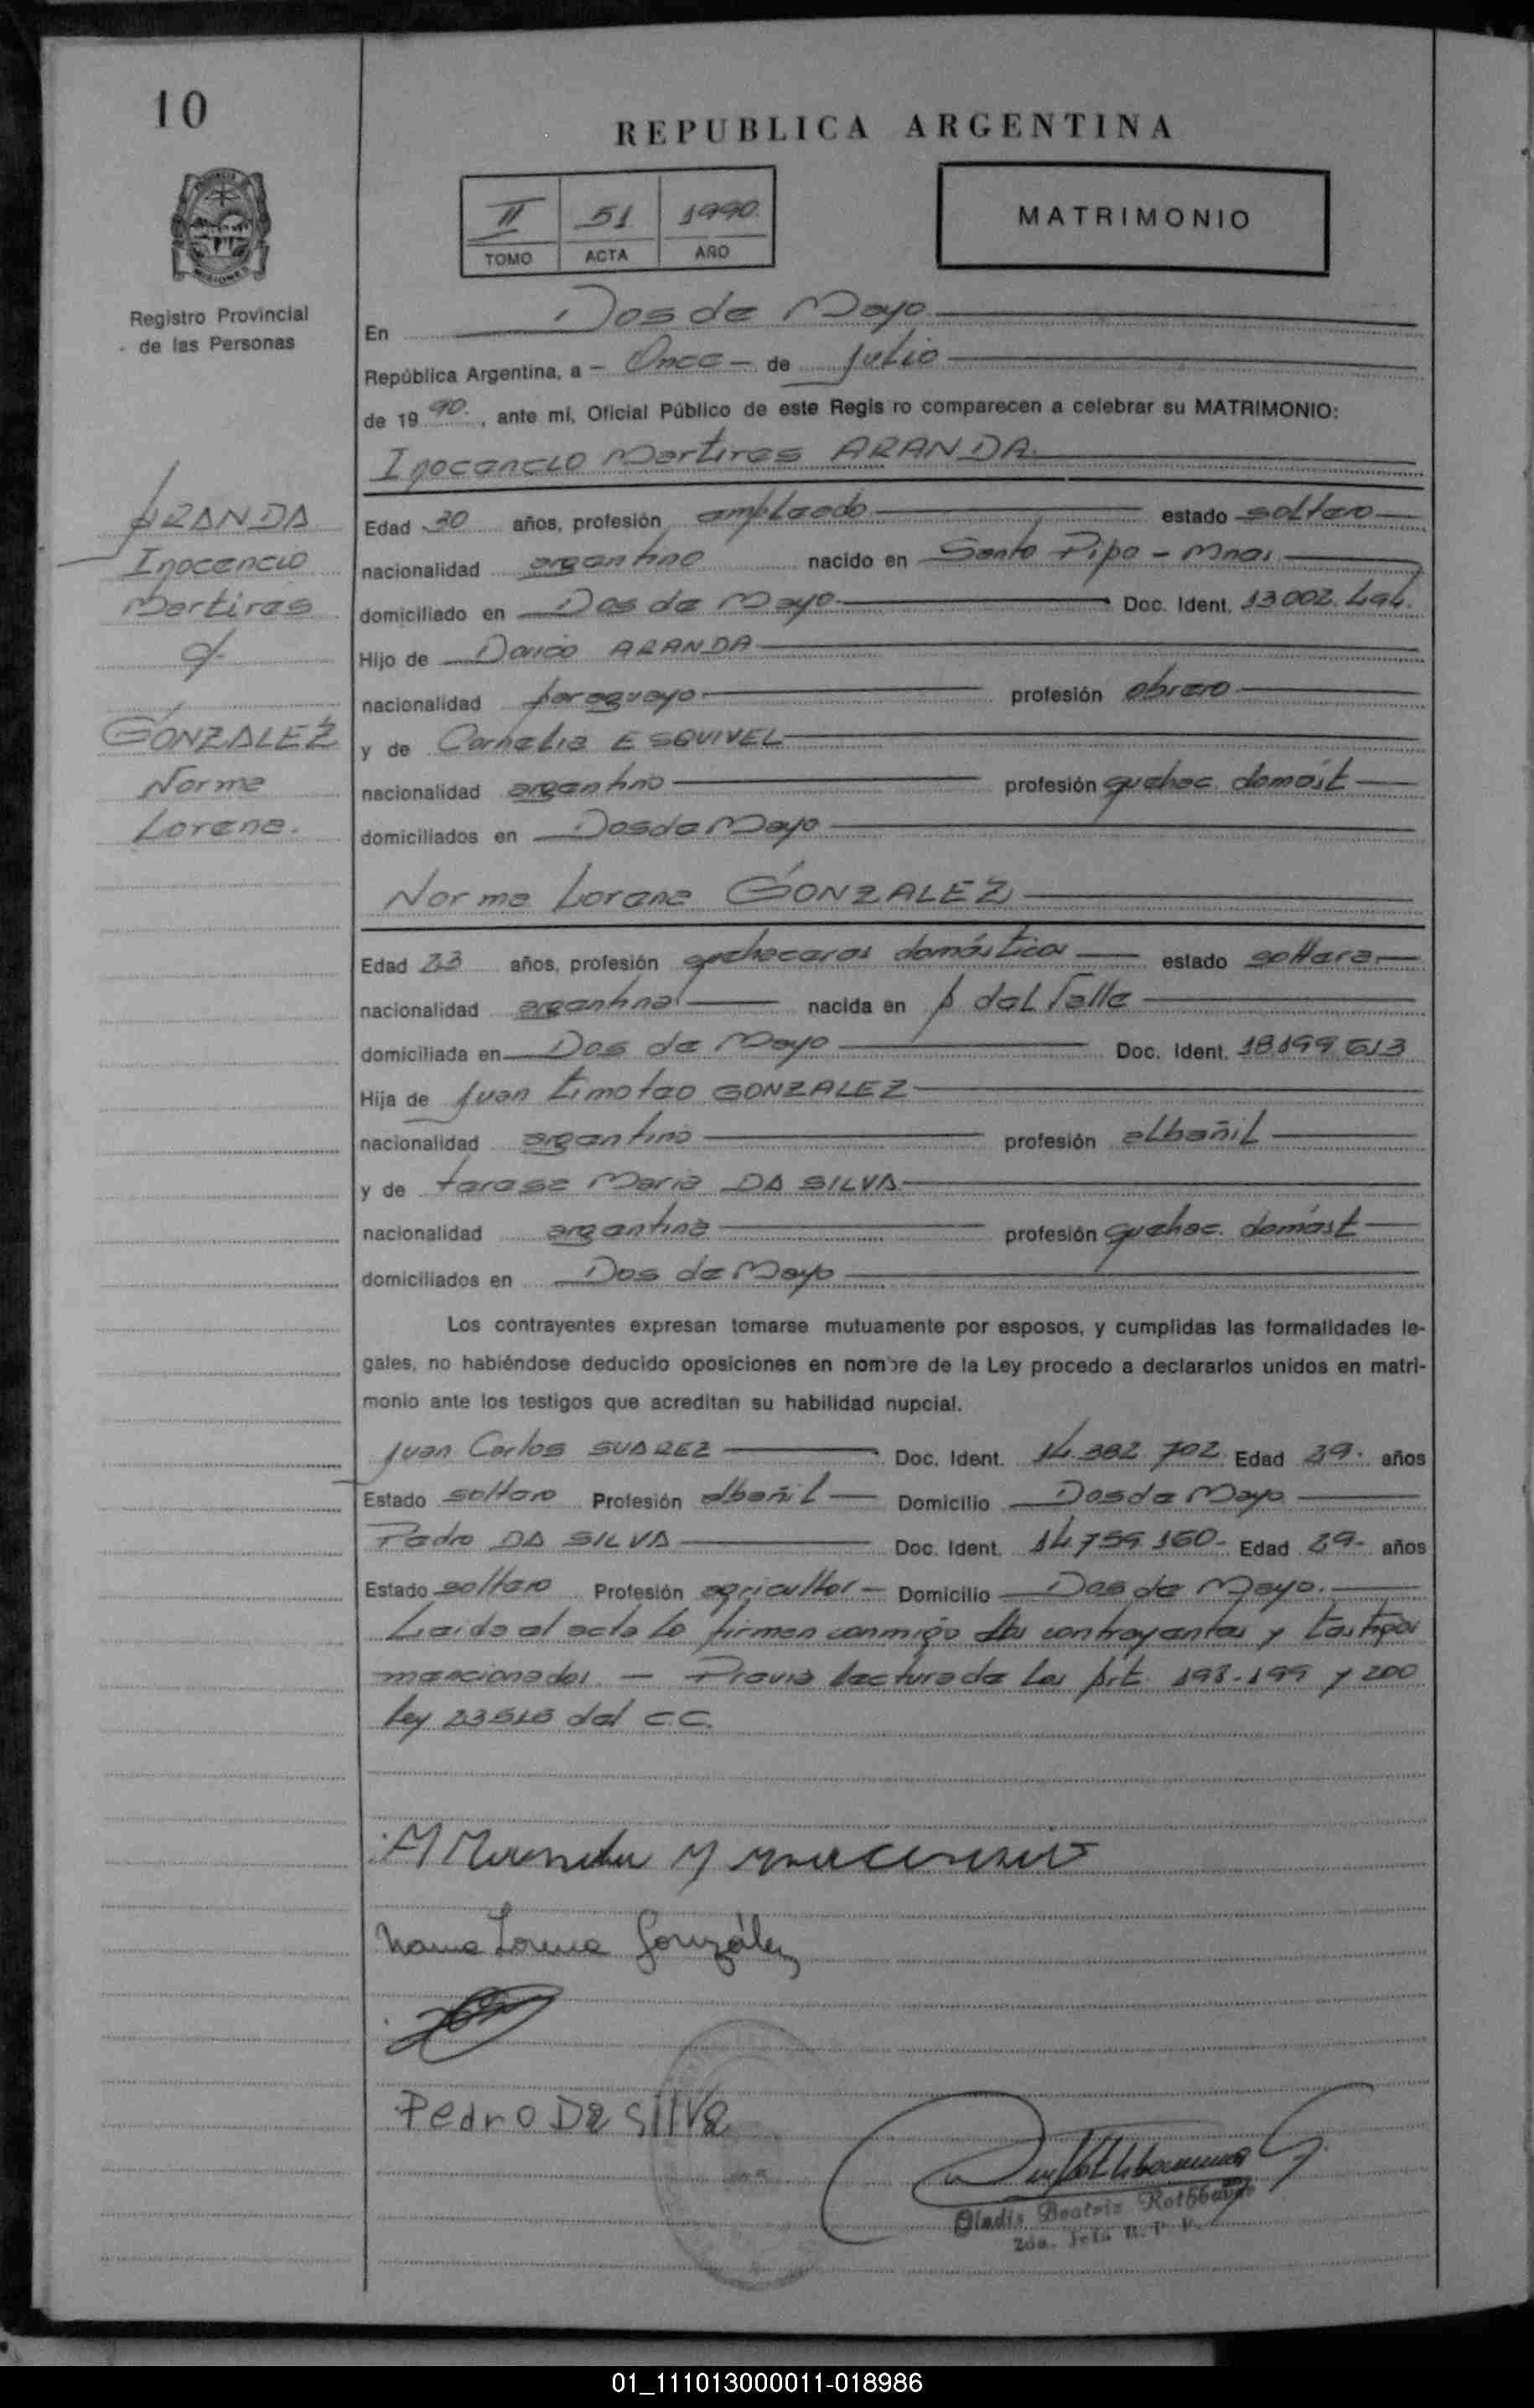 10
REPUBLICA ARGENTINA
II 51 1990
TOMO ACTA AÑO
MATRIMONIO
PROVINCIA
MISIONES
Registro Provincial
de las Personas
En Dos de Mayo
República Argentina, a - Once - de Julio
de 1990, ante mi, Oficial Público de este Regis ro comparecen a celebrar su MATRIMONIO:
Inocencio Martires ARANDA
ARANDA
Inocencio
Martires
c/
GONZALEZ
Norma
Lorena.
Edad 30 años, profesión empleado estado soltero
nacionalidad argentino nacido en Santo Pipo - Mnes.
domiciliado en Dos de Mayo Doc. Ident. 13002.494.
Hijo de Darico ARANDA
nacionalidad paraguayo profesión obrero
y de Cornelia ESQUIVEL
nacionalidad argentino profesión quehac. domést
domiciliados en Dos de Mayo
Norma Lorena GONZALEZ
Edad 23 años, profesión quehaceres domésticos estado soltera
nacionalidad argentina nacida en A. del Valle
domiciliada en Dos de Mayo Doc. Ident. 18.199.613
Hija de Juan Timoteo GONZALEZ
nacionalidad argentino profesión albañil
y de teresa Maria DA SILVA
nacionalidad argentina profesión quehac. domést
domiciliados en Dos de Mayo
Los contrayentes expresan tomarse mutuamente por esposos, y cumplidas las formalidades le-
gales, no habiéndose deducido oposiciones en nombre de la Ley procedo a declararlos unidos en matri-
monio ante los testigos que acreditan su habilidad nupcial.
Juan Carlos SUAREZ Doc. Ident. 14.382.702 Edad 29. años
Estado soltero Profesión albañil Domicilio Dos de Mayo
Pedro DA SILVA Doc. Ident. 14.759.160- Edad 29- años
Estado soltero Profesión agricultor - Domicilio Dos de Mayo.
Leida el acta lo firman conmigo los contrayentes y testigos
mencionados. - Previa lectura de los Art. 198-199 y 200
ley 23515 del C.C.
Norma Lorena González
Pedro Da Silva
Gladis Beatriz Rothbauer
2da. Jefa R. P. P.
01_111013000011-018986